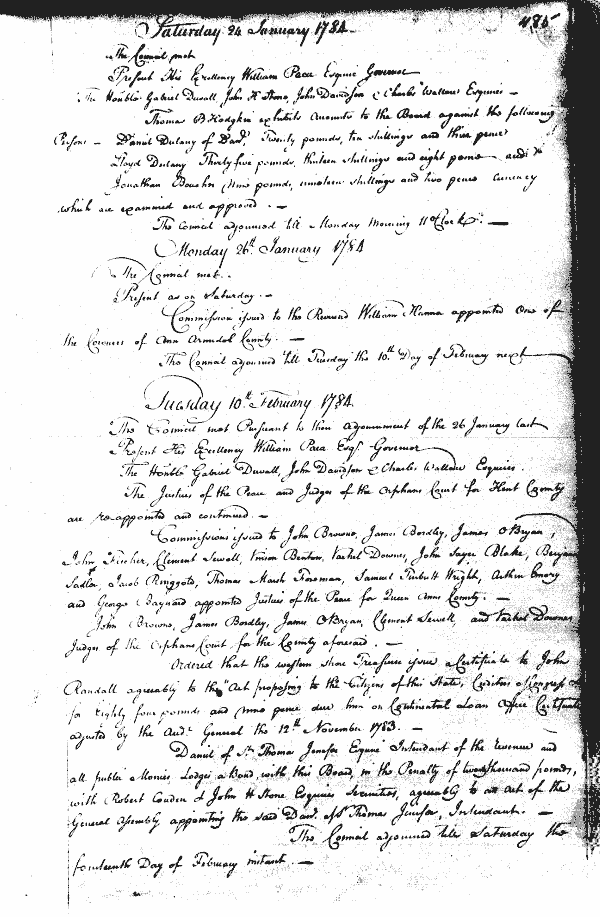 485
Saturday 24 January 1784
The Council met
Present His Excellency William Paca Esquire Governor
The Honble Gabriel Duvall, John H Stone, John Davidson & Charles Wallace Esquires –
Thomas B Hodgkin exhibits Accounts to the Board against the following
Persons – Daniel Dulany of Danl, Twenty pounds, ten shillings and three pence
Lloyd Dulany Thirty five pounds, thirteen shillings and eight pence and
Jonathan Boucher Nine pounds, nineteen shillings and two pence Currency
which are examined and approved. –
The Council adjourned till Monday Morning 11 oClock. –
Monday 26th January 1784
The Council met.
Present as on Saturday. –
Commission issued to the Reverend William Hanna appointed One of
the Coroners of Ann Arundel County. –
The Council adjourned till Tuesday the 10th Day of February next
Tuesday 10th February 1784
The Council met Pursuant to their adjournment of the 26 January last
Present His Excellency William Paca Esqr Governor
The Honble Gabriel Duvall, John Davidson & Charles Wallace Esquires.
The Justices of the Peace and Judges of the Orphans Court for Kent County
are re-appointed and continued. –
Commissions issued to John Browne, James Bordley, James OBryan,
John Fischer, Clement Sewell, Vinson Benton, Vachel Downes, John Sayer Blake,
Sadler, Jacob Ringgold, Thomas Marsh Foreman, Samuel Turbutt Wright, Arthur Emory
and George Baynard appointed Justices of the Peace for Queen Anns County. –
John Browne, James Bordley, James OBryan, Clement Sewell, and Vachel Downes
Judges of the Orphans Court for the County aforesaid. –
Ordered that the western shore Treasurer issue a Certificate to John
Randall agreeably to the "Act proposing to the Citizens of this State, Creditors of Congress
for Eighty four pounds and nine pence due him on Continental Loan Office Certificates
adjusted by the Audr General the 12th November 1783. –
Daniel of St Thomas Jenifer Esquire Intendant of the revenue and
all public Monies Lodges a Bond with this Board, in the Penalty of two thousand pounds,
with Robert Couden & John H Stone Esquires Securities, agreeably to an Act of the
General Assembly appointing the said Danl of St Thomas Jenifer, Intendant. –
The Council adjourned till Saturday the
fourteenth Day of February instant. –